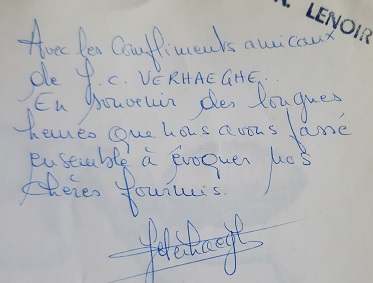 . LENOIR
Avec les Compliments amicaux
de J. C. VERHAEGHE.
En souvenir des longues
heures que nous avons passé
ensemble à évoquer nos
chères fourmis.
JVerhaeghe